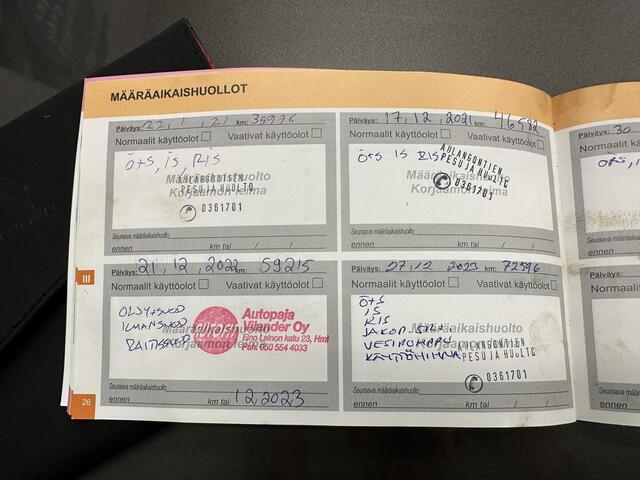 MÄÄRÄAIKAISHUOLLOT
Päiväys: 22, 1, 21 km: 35926
Normaalit käyttöolot Vaativat käyttöolot
Ö+S, IS, RIS
AULANGONTIEN
PESU JA HUOLTO
Määräaikaishuolto
Korjaamon leima
0361701
Seuraava määräaikaishuolto
ennen km tai / /
Päiväys: 17, 12, 2021 km: 46582
Normaalit käyttöolot Vaativat käyttöolot
Ö+S IS RIS
AULANGONTIEN
PESU JA HUOLTO
Määräaikaishuolto
Korjaamon leima
0361701
Seuraava määräaikaishuolto
ennen km tai / /
Päiväys: 30
Normaalit
III
Päiväys: 21, 12, 2022 km: 59215
Normaalit käyttöolot Vaativat käyttöolot
Autopaja
Vilander Oy
Eino Leinon katu 23, Hml
Puh. 050 554 4033
Määräaikaishuolto
Korjaamon leima
Seuraava määräaikaishuolto
ennen km tai 1, 2, 2023
Päiväys: 07, 12 2023 km: 72596
Normaalit käyttöolot Vaativat käyttöolot
Ö+S
IS
RIS
JAKOP. SRJ.
VESIPUMPPU
KÄYTTÖHIHNA
AULANGONTIEN
PESU JA HUOLTO
Määräaikaishuolto
Korjaamon leima
0361701
Seuraava määräaikaishuolto
ennen km tai / /
Päiväys:
Normaalit
Seuraava
ennen
26